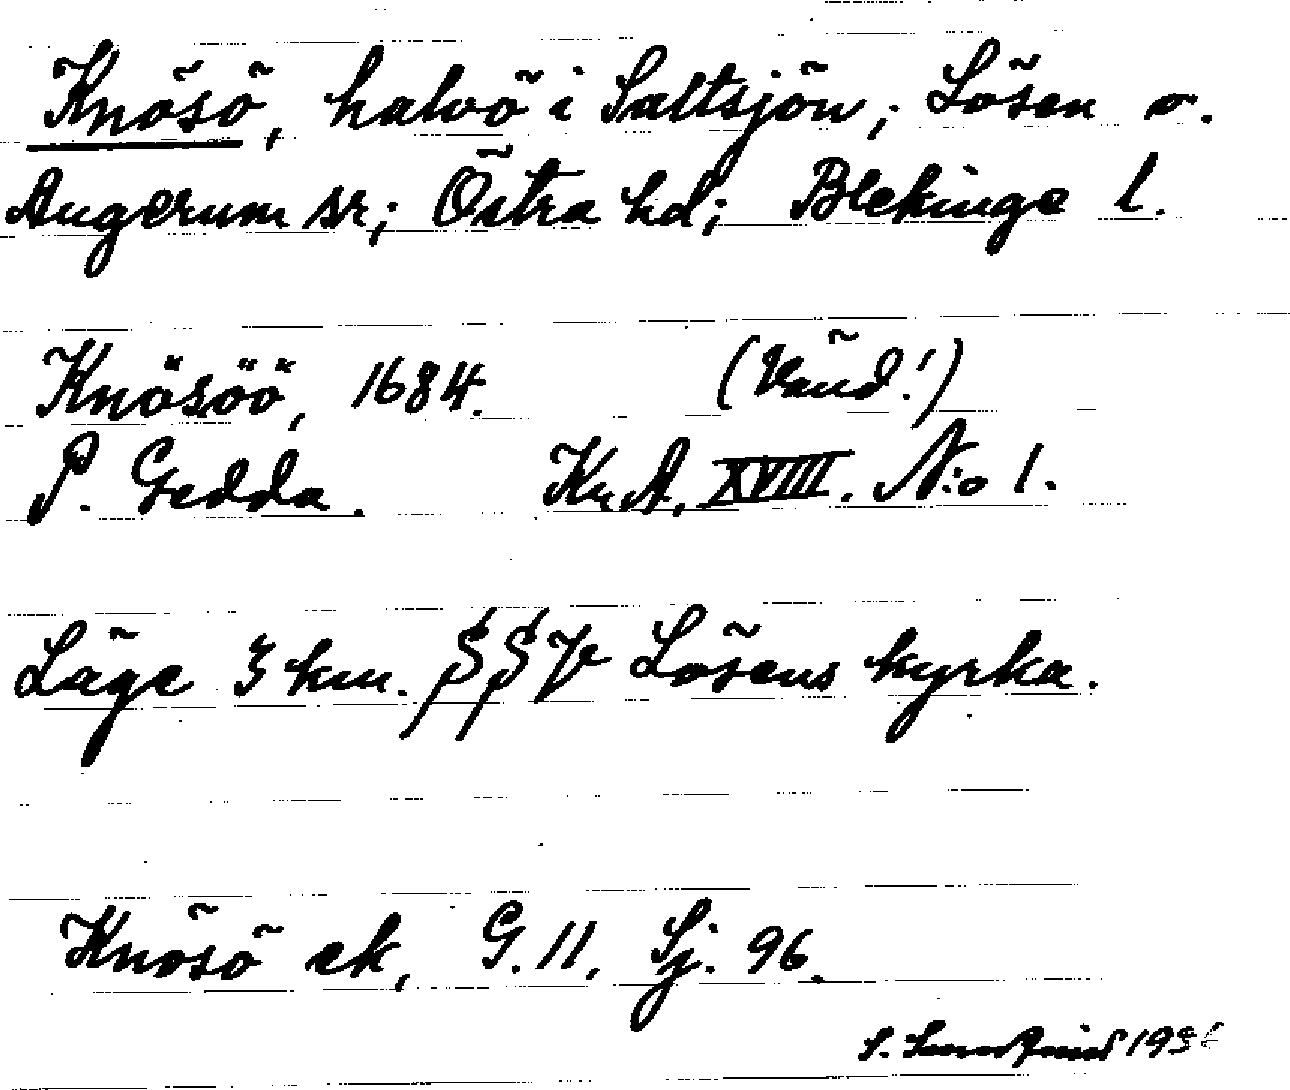 Knösö, halvö i Saltsjön; Lösen o.
Augerum sr; Östra hd; Blekinge l.
Knösöö, 1684. (Vänd!)
P. Gedda. Kr.A. XVIII. N:o 1.
Läge 3 km. SSV Lösens kyrka.
Knösö ek, G.11, Sj. 96.
S. 19